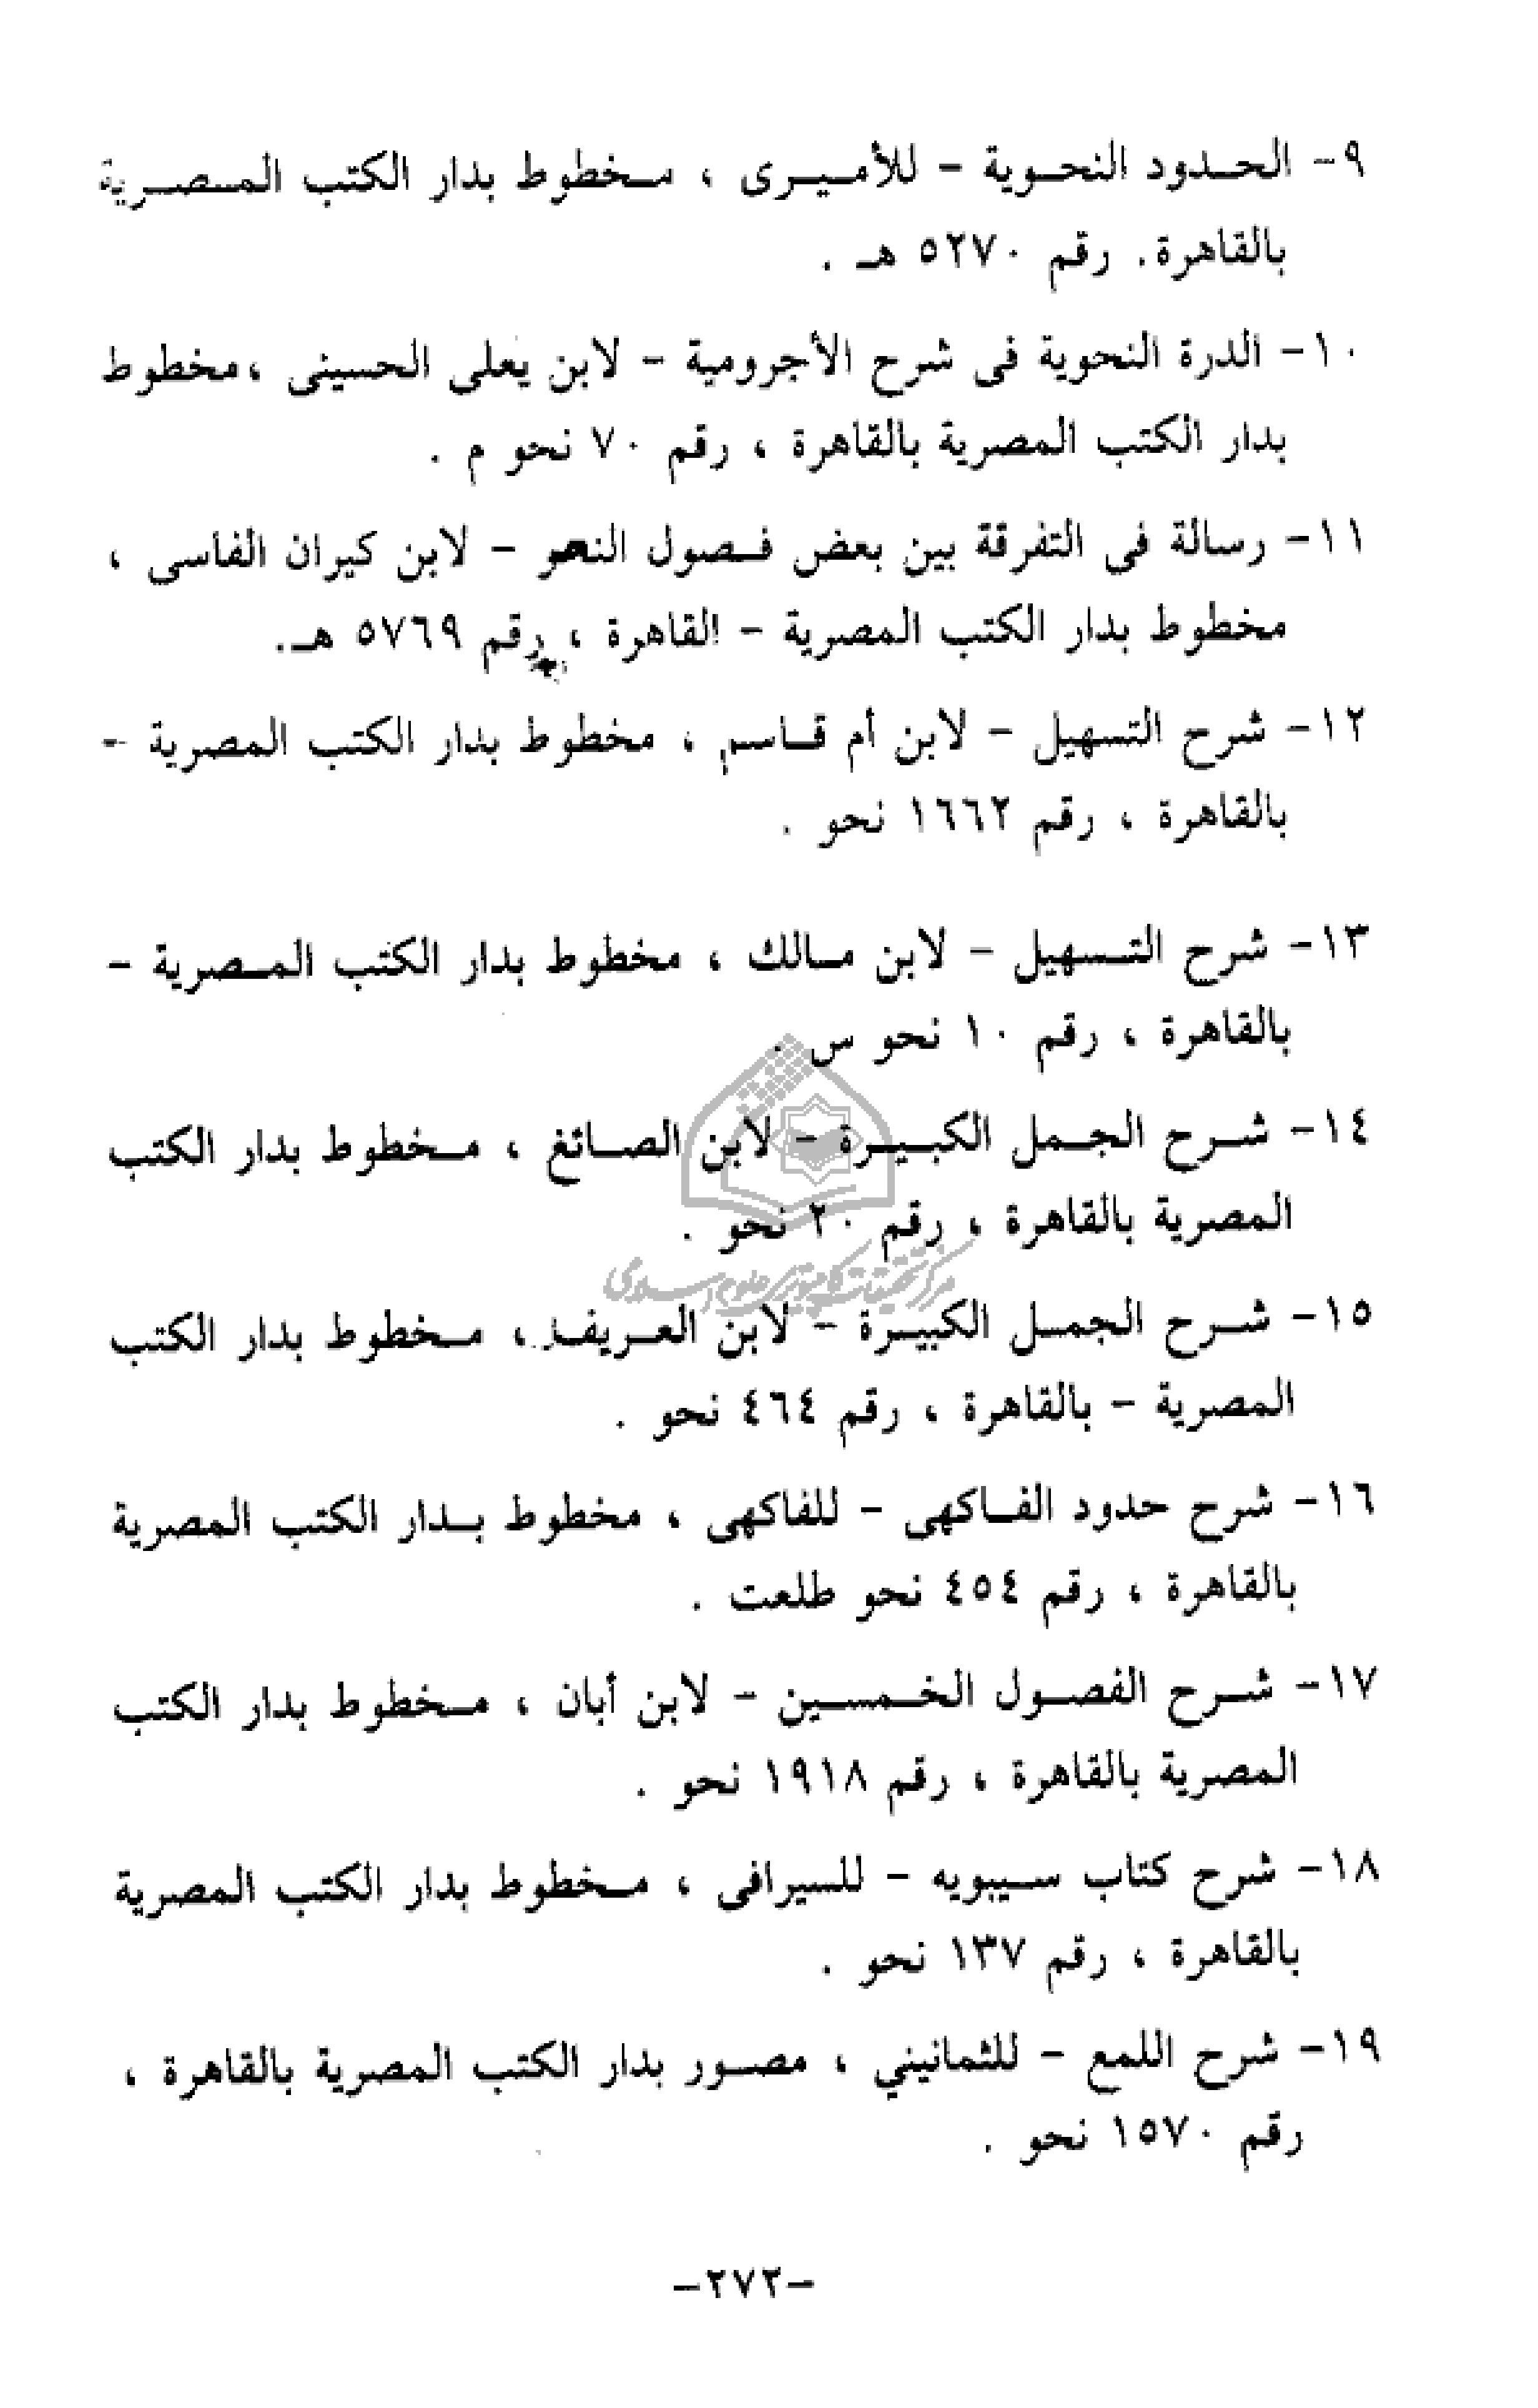 ٩- الحدود النحوية - للأميرى ، مخطوط بدار الكتب المصرية
بالقاهرة. رقم ٥٢٧٠ هـ .
١٠- الدرة النحوية فى شرح الأجرومية - لابن يعلى الحسينى ،مخطوط
بدار الكتب المصرية بالقاهرة ، رقم ٧٠ نحو م .
١١- رسالة فى التفرقة بين بعض فصول النحو - لابن كيران الفاسى ،
مخطوط بدار الكتب المصرية - القاهرة ، رقم ٥٧٦٩ هـ.
١٢- شرح التسهيل - لابن أم قاسم ، مخطوط بدار الكتب المصرية -
بالقاهرة ، رقم ١٦٦٢ نحو .
١٣- شرح التسهيل - لابن مالك ، مخطوط بدار الكتب المصرية -
بالقاهرة ، رقم ١٠ نحو س .
١٤- شرح الجمل الكبيرة - لابن الصائغ ، مخطوط بدار الكتب
المصرية بالقاهرة ، رقم ٢٠ نحو .
مركز تحقيقات كامپيوتري علوم اسلامي
١٥- شرح الجمل الكبيرة - لابن العريف ، مخطوط بدار الكتب
المصرية - بالقاهرة ، رقم ٤٦٤ نحو .
١٦- شرح حدود الفاكهى - للفاكهى ، مخطوط بدار الكتب المصرية
بالقاهرة ، رقم ٤٥٤ نحو طلعت .
١٧- شرح الفصول الخمسين - لابن أبان ، مخطوط بدار الكتب
المصرية بالقاهرة ، رقم ١٩١٨ نحو .
١٨- شرح كتاب سيبويه - للسيرافى ، مخطوط بدار الكتب المصرية
بالقاهرة ، رقم ١٣٧ نحو .
١٩- شرح اللمع - للثمانيني ، مصور بدار الكتب المصرية بالقاهرة ،
رقم ١٥٧٠ نحو .
-٢٧٢-